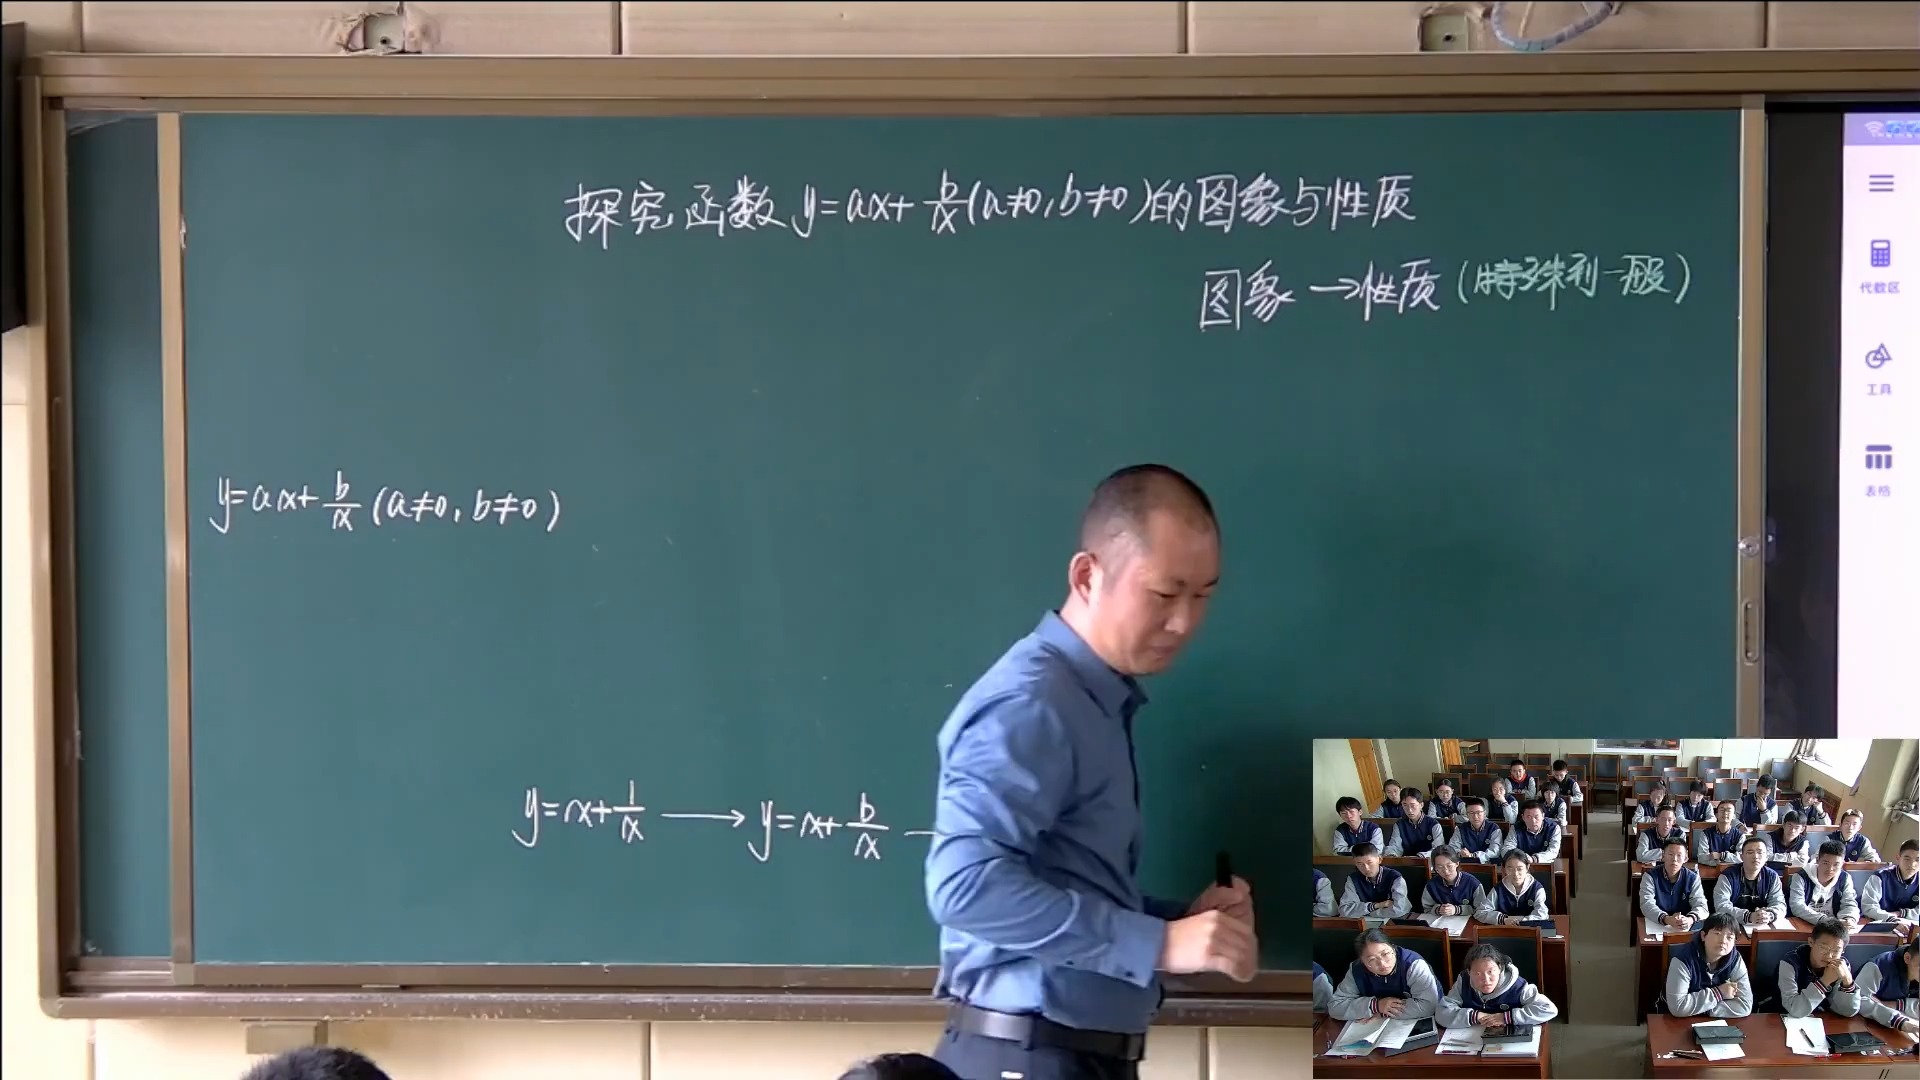 探究函数 y=ax+b/x(a≠0,b≠0)的图象与性质
图象→性质(特殊到一般)
y=ax+b/x(a≠0,b≠0)
y=x+1/x → y=x+b/x
代数区
工具
表格